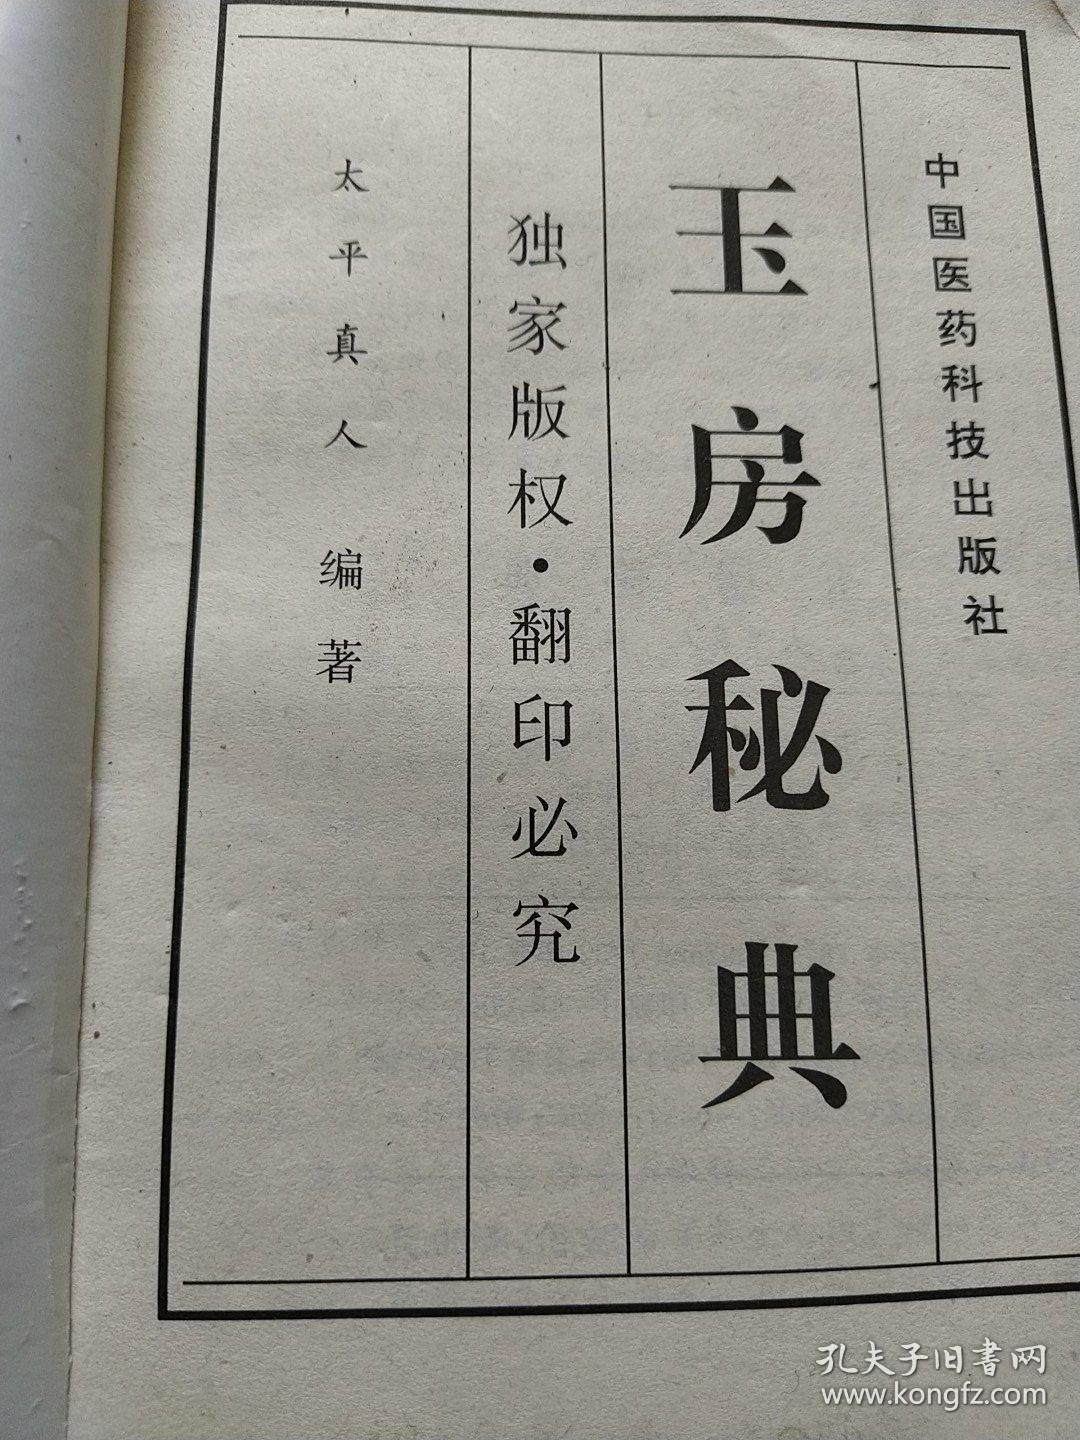 中国医药科技出版社
玉房秘典
独家版权·翻印必究
太平真人 编著
孔夫子旧書网
www.kongfz.com